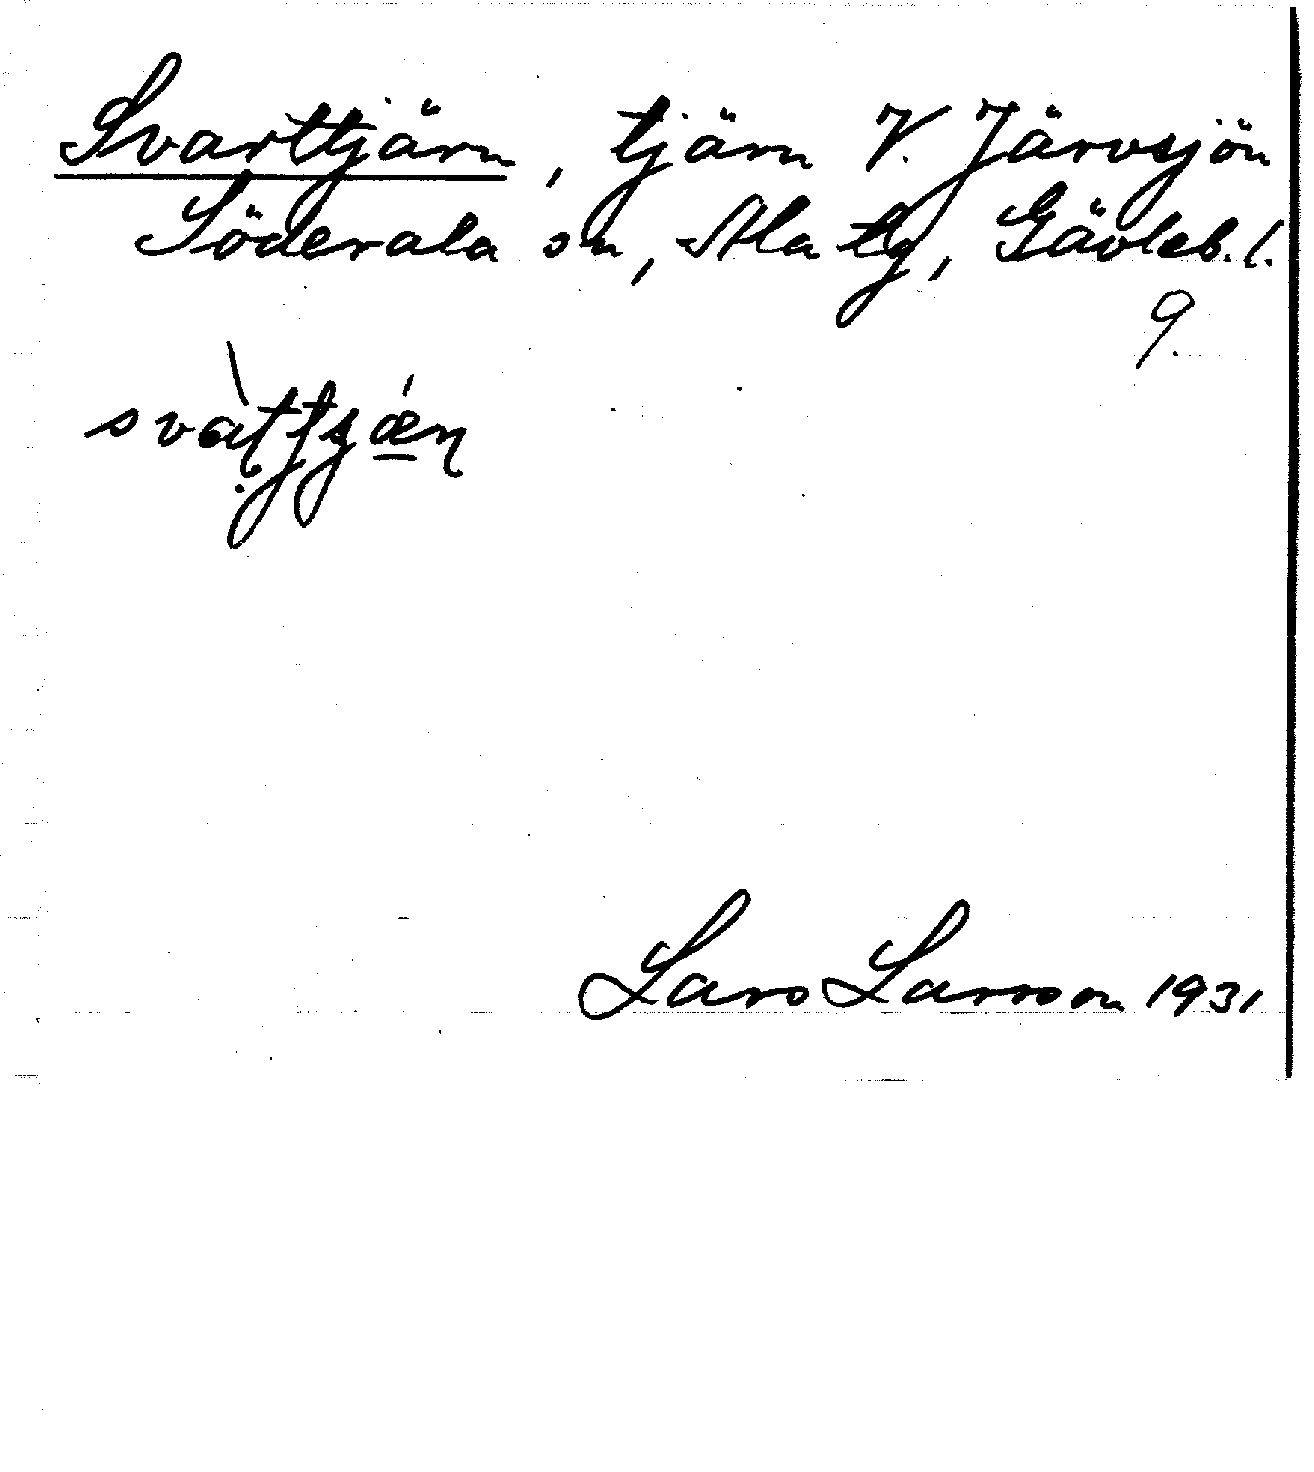 Svarttjärn, tjärn V. Järvsjön
Söderala sn, Ala tg, Gävleb. l.
9.
Lars Larsson 1931